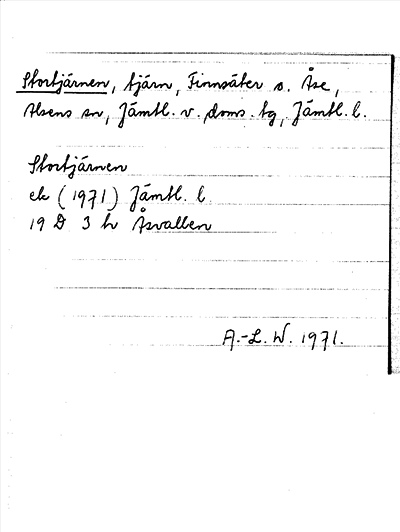 Stortjärnen, tjärn, Finnsäter o. Åse,
Alsens sn, Jämtl. v. doms. tg, Jämtl. l.
Stortjärnen
ek (1971) Jämtl. l.
19 D 3 h Åsvallen
A.-L. W. 1971.